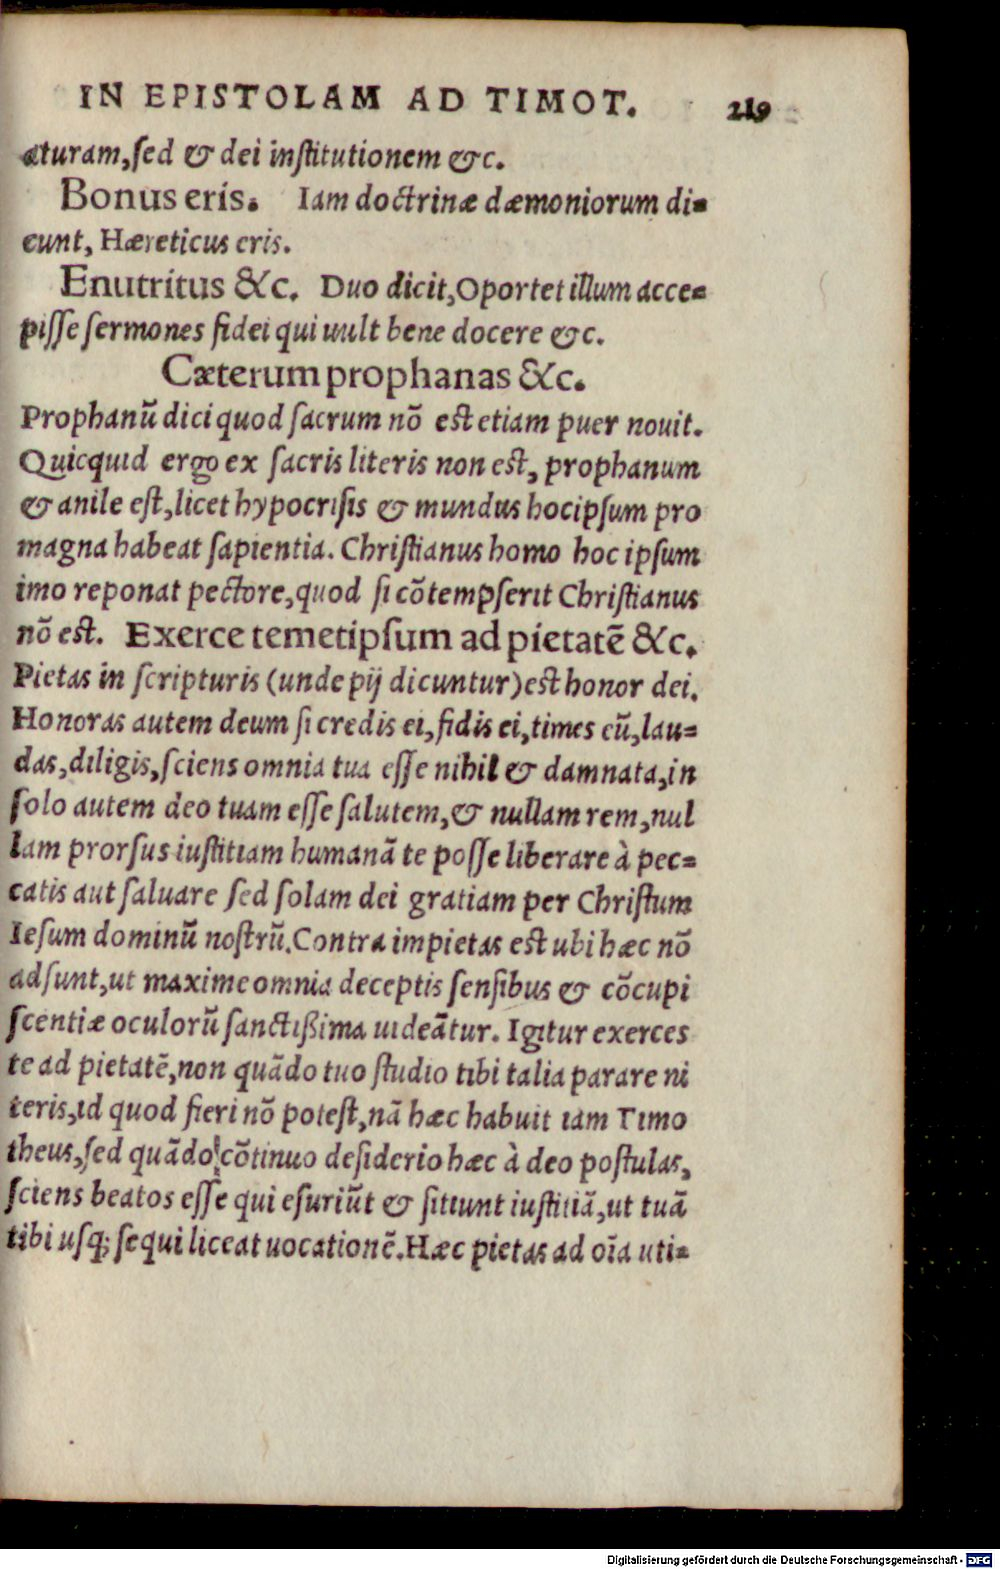 IN EPISTOLAM AD TIMOT. 219
aturam,ſed & dei inſtitutionem &c.
Bonus eris. Iam doctrinæ dæmoniorum di=
cunt, Hæreticus eris.
Enutritus &c. Duo dicit,Oportet illum acce=
piſſe ſermones fidei qui uult bene docere &c.
Cæterum prophanas &c.
Prophanū dici quod ſacrum nō est etiam puer nouit.
Quicquid ergo ex ſacris literis non est, prophanum
& anile eſt,licet hypocriſis & mundus hocipſum pro
magna habeat ſapientia. Chriſtianus homo hoc ipſum
imo reponat pectore,quod ſi cōtempſerit Chriſtianus
nō est. Exerce temetipſum ad pietatē &c.
Pietas in ſcripturis (unde pij dicuntur)est honor dei.
Honoras autem deum ſi credis ei,fidis ei,times eū,lau=
das,diligis,ſciens omnia tua eſſe nihil & damnata,in
ſolo autem deo tuam eſſe ſalutem,& nullam rem,nul
lam prorſus iuſtitiam humanā te poſſe liberare à pec=
catis aut ſaluare ſed ſolam dei gratiam per Chriſtum
Ieſum dominū noſtrū.Contra impietas est ubi hæc nō
adſunt,ut maxime omnia deceptis ſenſibus & cōcupi
ſcentiæ oculorū ſanctißima uideātur. Igitur exerces
te ad pietatē,non quādo tuo ſtudio tibi talia parare ni
teris,id quod fieri nō poteſt,nā hæc habuit iam Timo
theus,ſed quādo cōtinuo deſiderio hæc à deo poſtulas,
ſciens beatos eſſe qui eſuriūt & ſitiunt iuſtitiā,ut tuā
tibi uſq; ſequi liceat uocationē.Hæc pietas ad oīa uti=
Digitalisierung gefördert durch die Deutsche Forschungsgemeinschaft - DFG